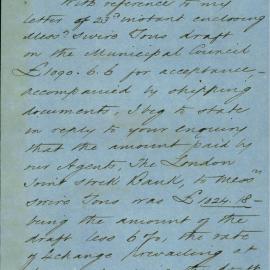 With reference to my
letter of 23rd instant enclosing
Messrs Swire Sons draft
on the Municipal Council
£1090.6.6 for acceptance,
accompanied by shipping
documents, I beg to state
in reply to your enquiry
that the amount paid by
our Agents, The London
Joint Stock Bank, to Messrs
Swire Sons was £1024.18
being the amount of the
draft less 6%, the rate
of Exchange prevailing at
draft